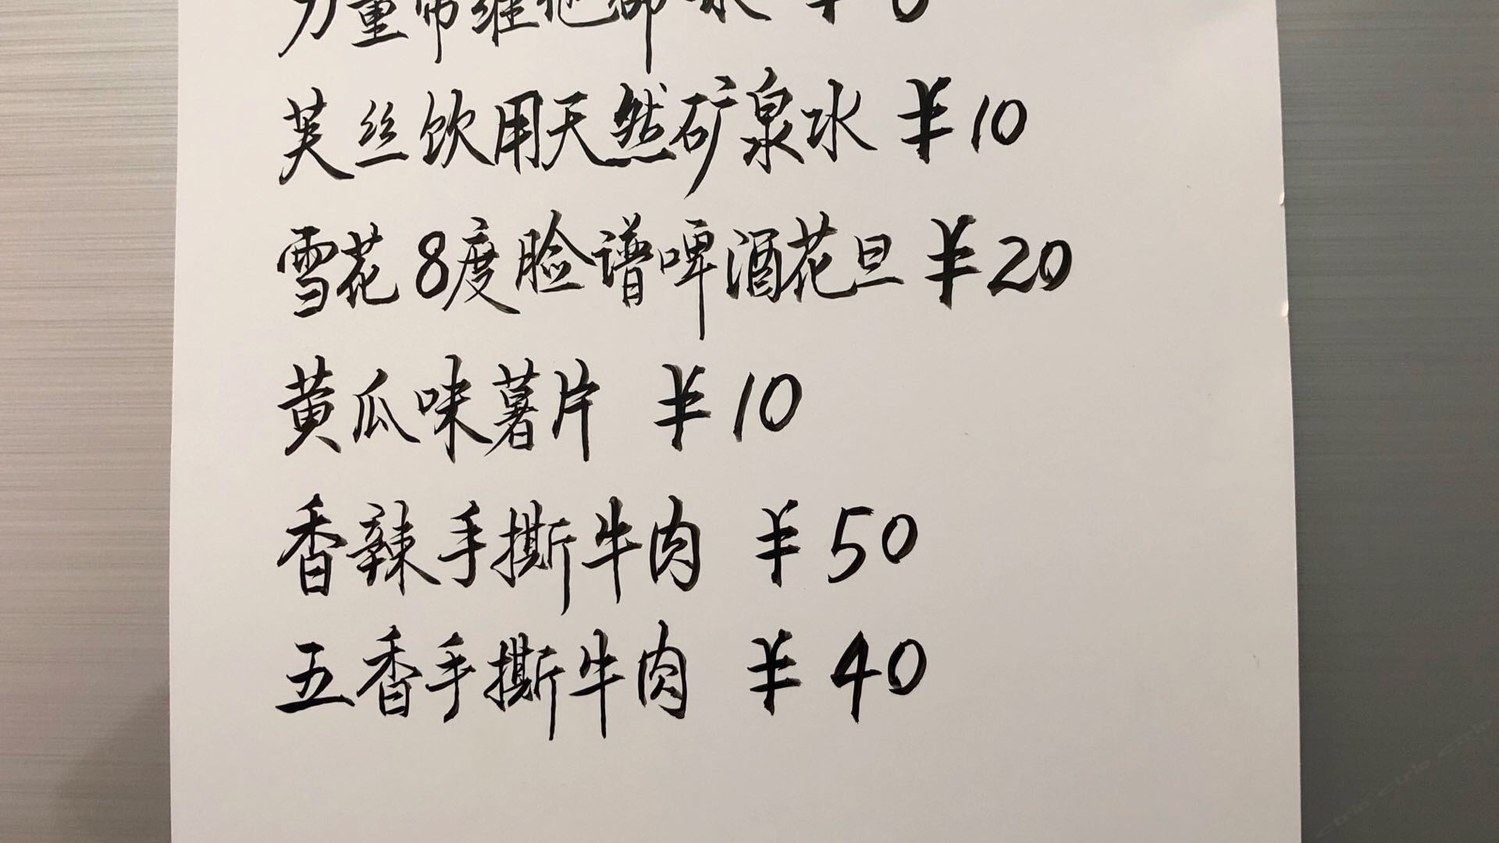 芙丝饮用天然矿泉水 ¥10
雪花8度脸谱啤酒花旦 ¥20
黄瓜味薯片 ¥10
香辣手撕牛肉 ¥50
五香手撕牛肉 ¥40